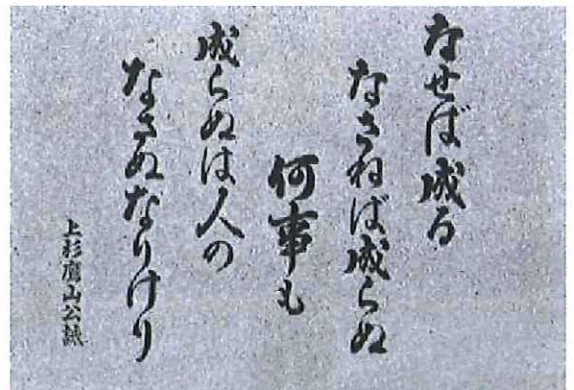 なせば成る
なさねば成らぬ
何事も
成らぬは人の
なさぬなりけり
上杉鷹山公詠